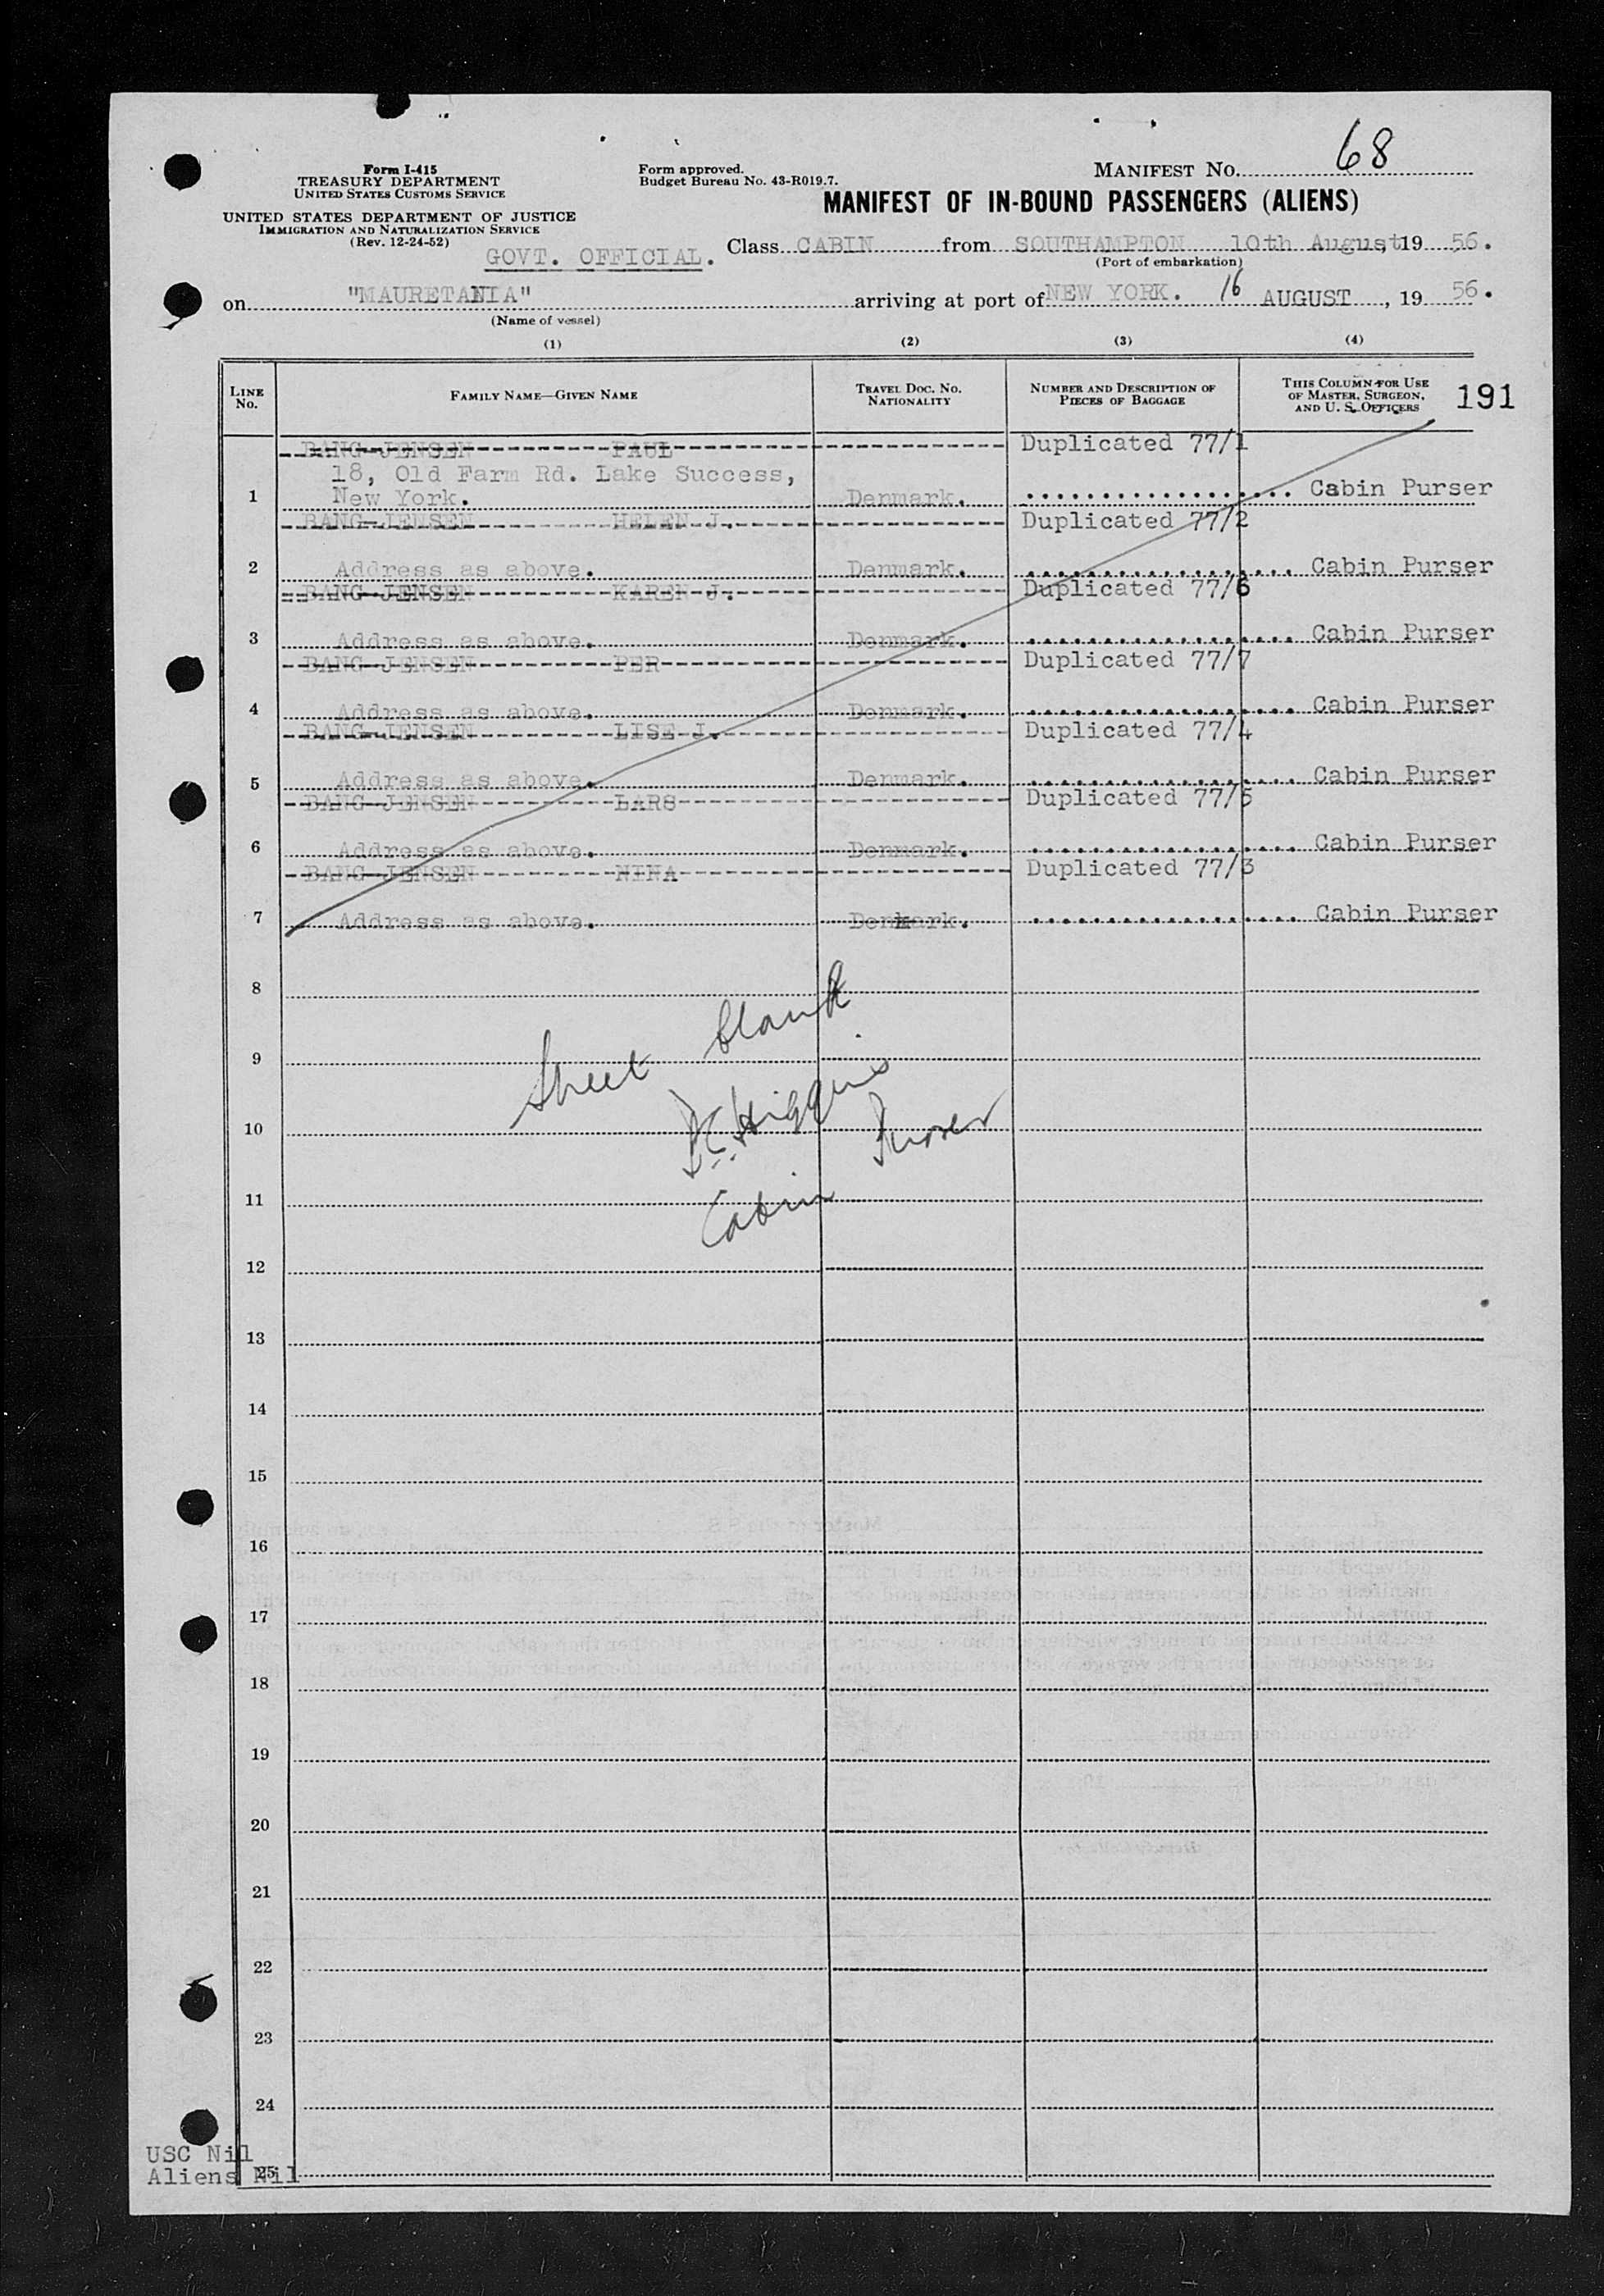 Form I-415
TREASURY DEPARTMENT
UNITED STATES CUSTOMS SERVICE
UNITED STATES DEPARTMENT OF JUSTICE
IMMIGRATION AND NATURALIZATION SERVICE
(Rev. 12-24-52)
Form approved.
Budget Bureau No. 43-R019.7.
MANIFEST NO. 68
MANIFEST OF IN-BOUND PASSENGERS (ALIENS)
GOVT. OFFICIAL. Class CABIN from SOUTHAMPTON 10th August, 19 56.
(Port of embarkation)
on "MAURETANIA" arriving at port of NEW YORK. 16 AUGUST, 19 56.
(Name of vessel)
(1) (2) (3) (4)
LINE No. FAMILY NAME—GIVEN NAME TRAVEL DOC. NO. NATIONALITY NUMBER AND DESCRIPTION OF PIECES OF BAGGAGE THIS COLUMN FOR USE OF MASTER, SURGEON, AND U. S. OFFICERS 191
BANG-JENSEN PAUL Duplicated 77/1
18, Old Farm Rd. Lake Success,
1 New York. Denmark. Cabin Purser
BANG-JENSEN HELEN J. Duplicated 77/2
2 Address as above. Denmark. Cabin Purser
BANG-JENSEN KAREN J. Duplicated 77/6
3 Address as above. Denmark. Cabin Purser
BANG-JENSEN PER Duplicated 77/7
4 Address as above. Denmark. Cabin Purser
BANG-JENSEN LISE J. Duplicated 77/4
5 Address as above. Denmark. Cabin Purser
BANG-JENSEN LARS Duplicated 77/5
6 Address as above. Denmark. Cabin Purser
BANG-JENSEN NINA Duplicated 77/3
7 Address as above. Denmark. Cabin Purser
8
Sheet blank
9
Higgins
10
Cabin Purser
11
12
13
14
15
16
17
18
19
20
21
22
23
24
USC Nil
Aliens Nil 25